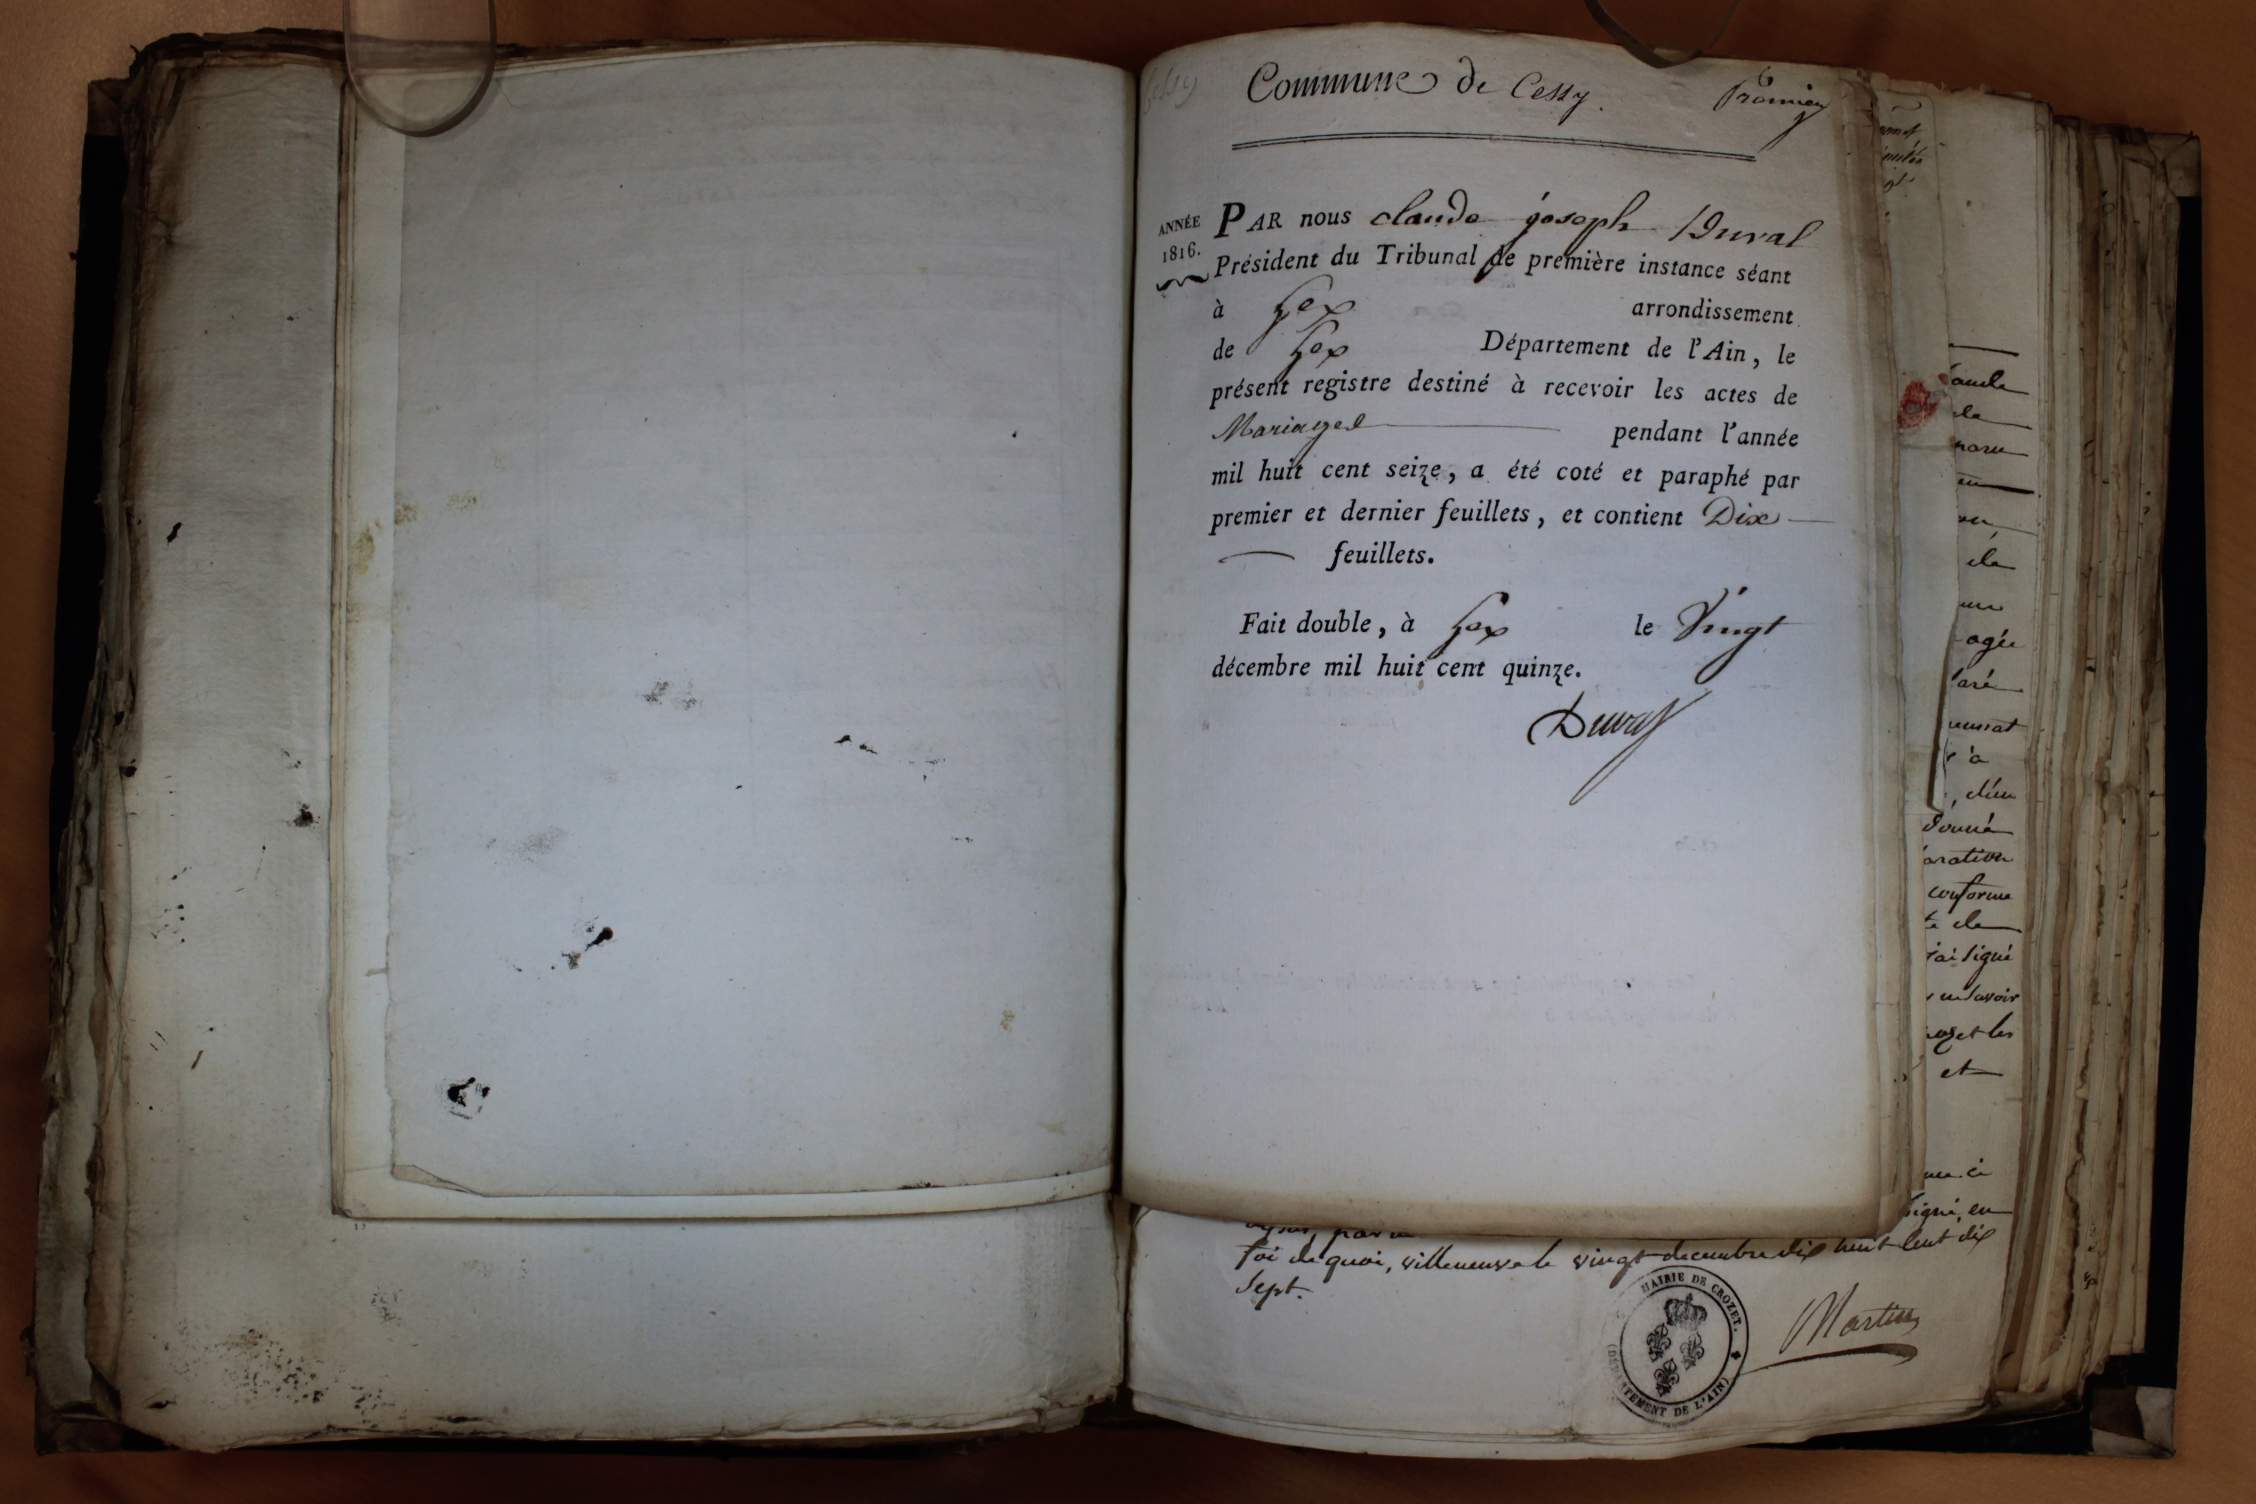 Commune de Cessy.
Premier
ANNÉE
1816.
PAR nous claude joseph Duval
Président du Tribunal de première instance séant
à Gex arrondissement
de Gex Département de l'Ain, le
présent registre destiné à recevoir les actes de
Mariages pendant l'année
mil huit cent seize, a été coté et paraphé par
premier et dernier feuillets, et contient Dix
feuillets.
Fait double, à Gex le Vingt
décembre mil huit cent quinze.
Duval
conforme
et
signé, en
foi de quoi, villeneuve le vingt decembre dix huit cent dix
Sept.
MAIRIE DE CROZET.
(DÉPARTEMENT DE L'AIN)
Martin